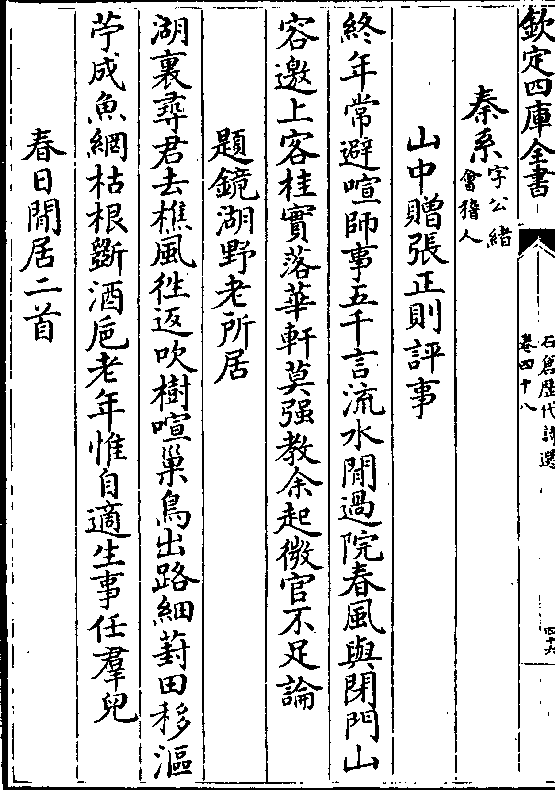 欽定四庫全書
石倉歷代詩選
卷四十八
四十六
秦系字公緒
會稽人
山中贈張正則評事
終年常避喧師事五千言流水閒過院春風與閉門山
容邀上客桂實落華軒莫强教余起微官不足論
題鏡湖野老所居
湖裏尋君去樵風徃返吹樹喧巢鳥出路細葑田移漚
苧成魚網枯根斵酒巵老年惟自適生事任羣兒
春日閒居二首